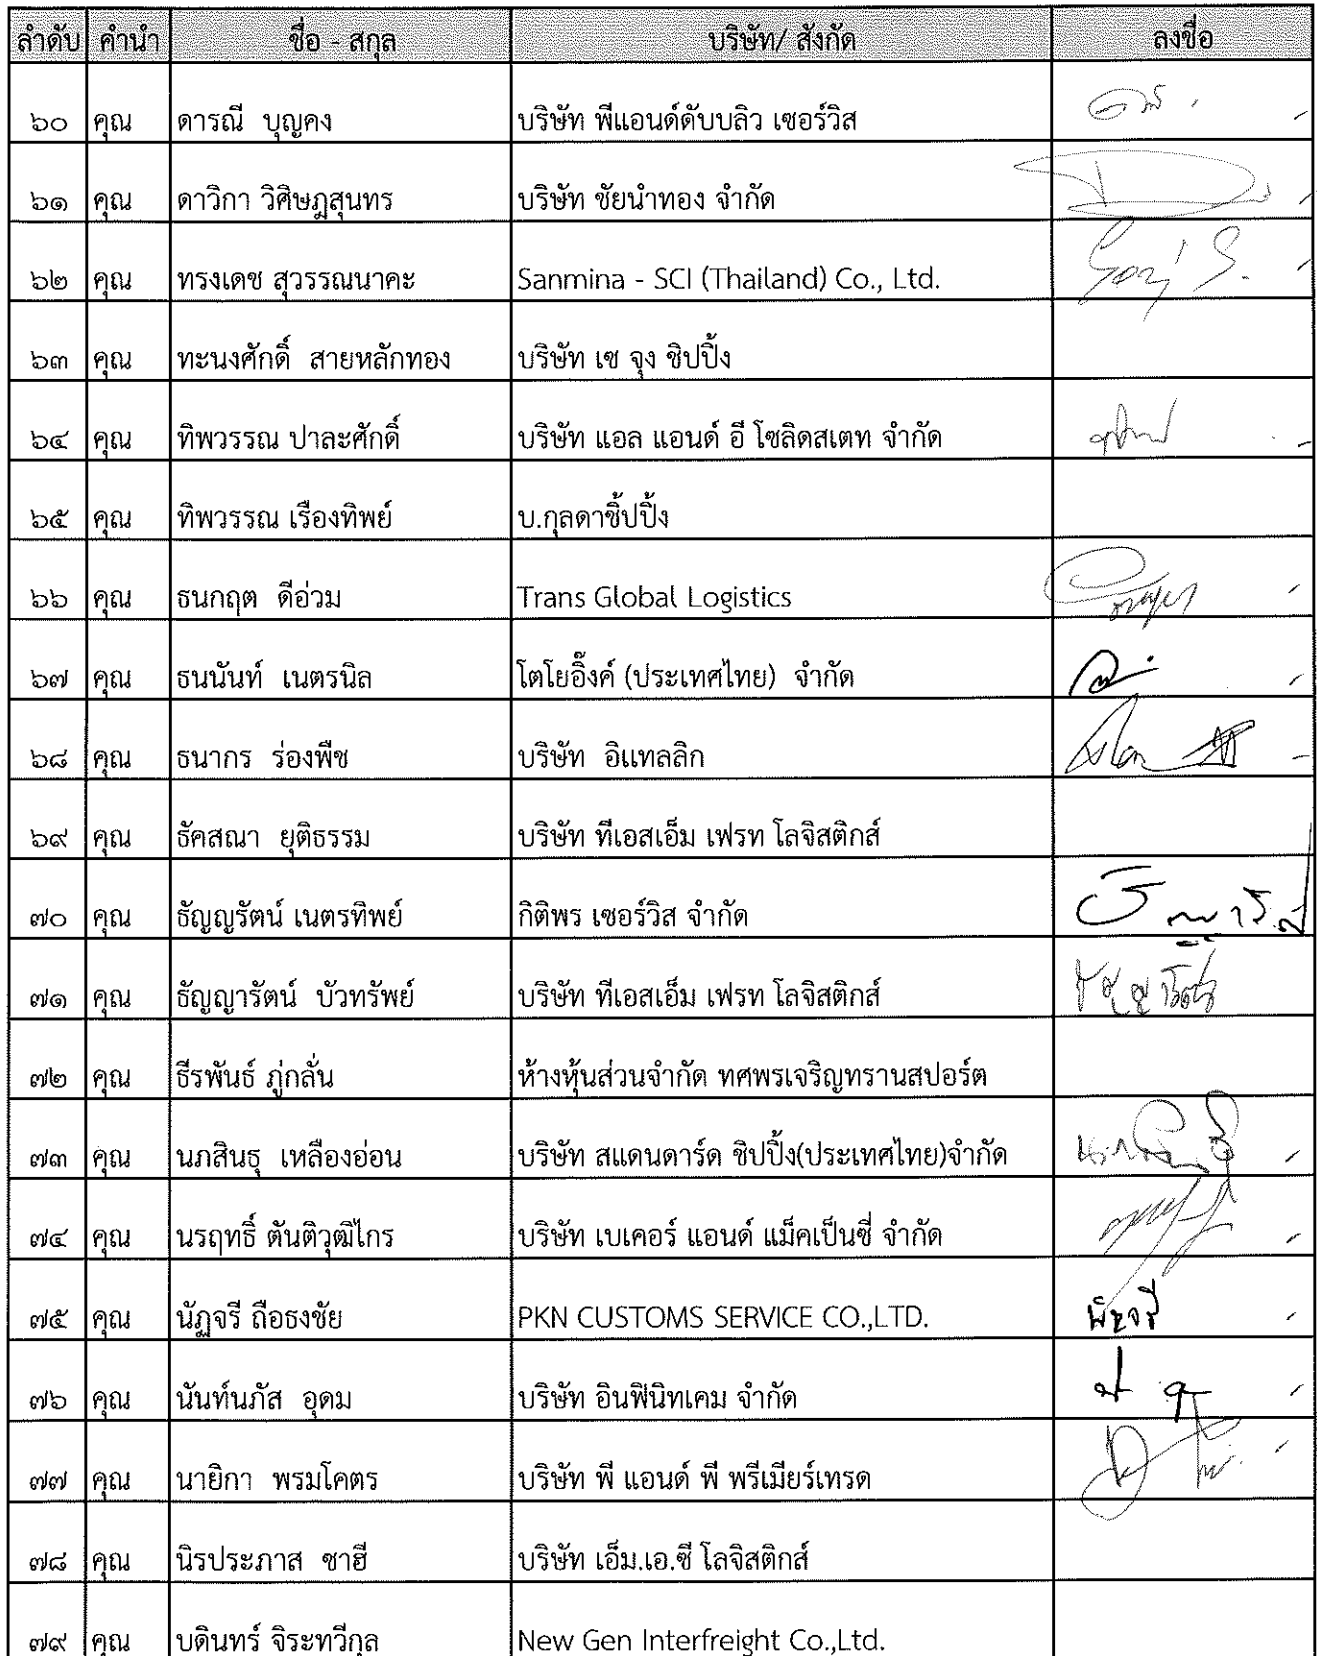 ลำดับ คำนำ ชื่อ - สกุล บริษัท/ สังกัด ลงชื่อ
๖๐ คุณ ดารณี บุญคง บริษัท พีแอนด์ดับบลิว เซอร์วิส
๖๑ คุณ ดาวิกา วิศิษฎสุนทร บริษัท ชัยนำทอง จำกัด
๖๒ คุณ ทรงเดช สุวรรณนาคะ Sanmina - SCI (Thailand) Co., Ltd.
๖๓ คุณ ทะนงศักดิ์ สายหลักทอง บริษัท เซ จุง ชิปปิ้ง
๖๔ คุณ ทิพวรรณ ปาละศักดิ์ บริษัท แอล แอนด์ อี โซลิดสเตท จำกัด
๖๕ คุณ ทิพวรรณ เรืองทิพย์ บ.กุลดาชิ้ปปิ้ง
๖๖ คุณ ธนกฤต ดีอ่วม Trans Global Logistics
๖๗ คุณ ธนนันท์ เนตรนิล โตโยอิ๊งค์ (ประเทศไทย) จำกัด
๖๘ คุณ ธนากร ร่องพืช บริษัท อิแทลลิก
๖๙ คุณ ธัคสณา ยุติธรรม บริษัท ทีเอสเอ็ม เฟรท โลจิสติกส์
๗๐ คุณ ธัญญรัตน์ เนตรทิพย์ กิติพร เซอร์วิส จำกัด
๗๑ คุณ ธัญญารัตน์ บัวทรัพย์ บริษัท ทีเอสเอ็ม เฟรท โลจิสติกส์
๗๒ คุณ ธีรพันธ์ ภู่กลั่น ห้างหุ้นส่วนจำกัด ทศพรเจริญทรานสปอร์ต
๗๓ คุณ นภสินธุ เหลืองอ่อน บริษัท สแดนดาร์ด ชิปปิ้ง(ประเทศไทย)จำกัด
๗๔ คุณ นรฤทธิ์ ตันติวุฒิไกร บริษัท เบเคอร์ แอนด์ แม็คเป็นซี่ จำกัด
๗๕ คุณ นัฏจรี ถือธงชัย PKN CUSTOMS SERVICE CO.,LTD.
๗๖ คุณ นันท์นภัส อุดม บริษัท อินฟินิทเคม จำกัด
๗๗ คุณ นายิกา พรมโคตร บริษัท พี แอนด์ พี พรีเมียร์เทรด
๗๘ คุณ นิรประภาส ซาฮี บริษัท เอ็ม.เอ.ซี โลจิสติกส์
๗๙ คุณ บดินทร์ จิระทวีกุล New Gen Interfreight Co.,Ltd.